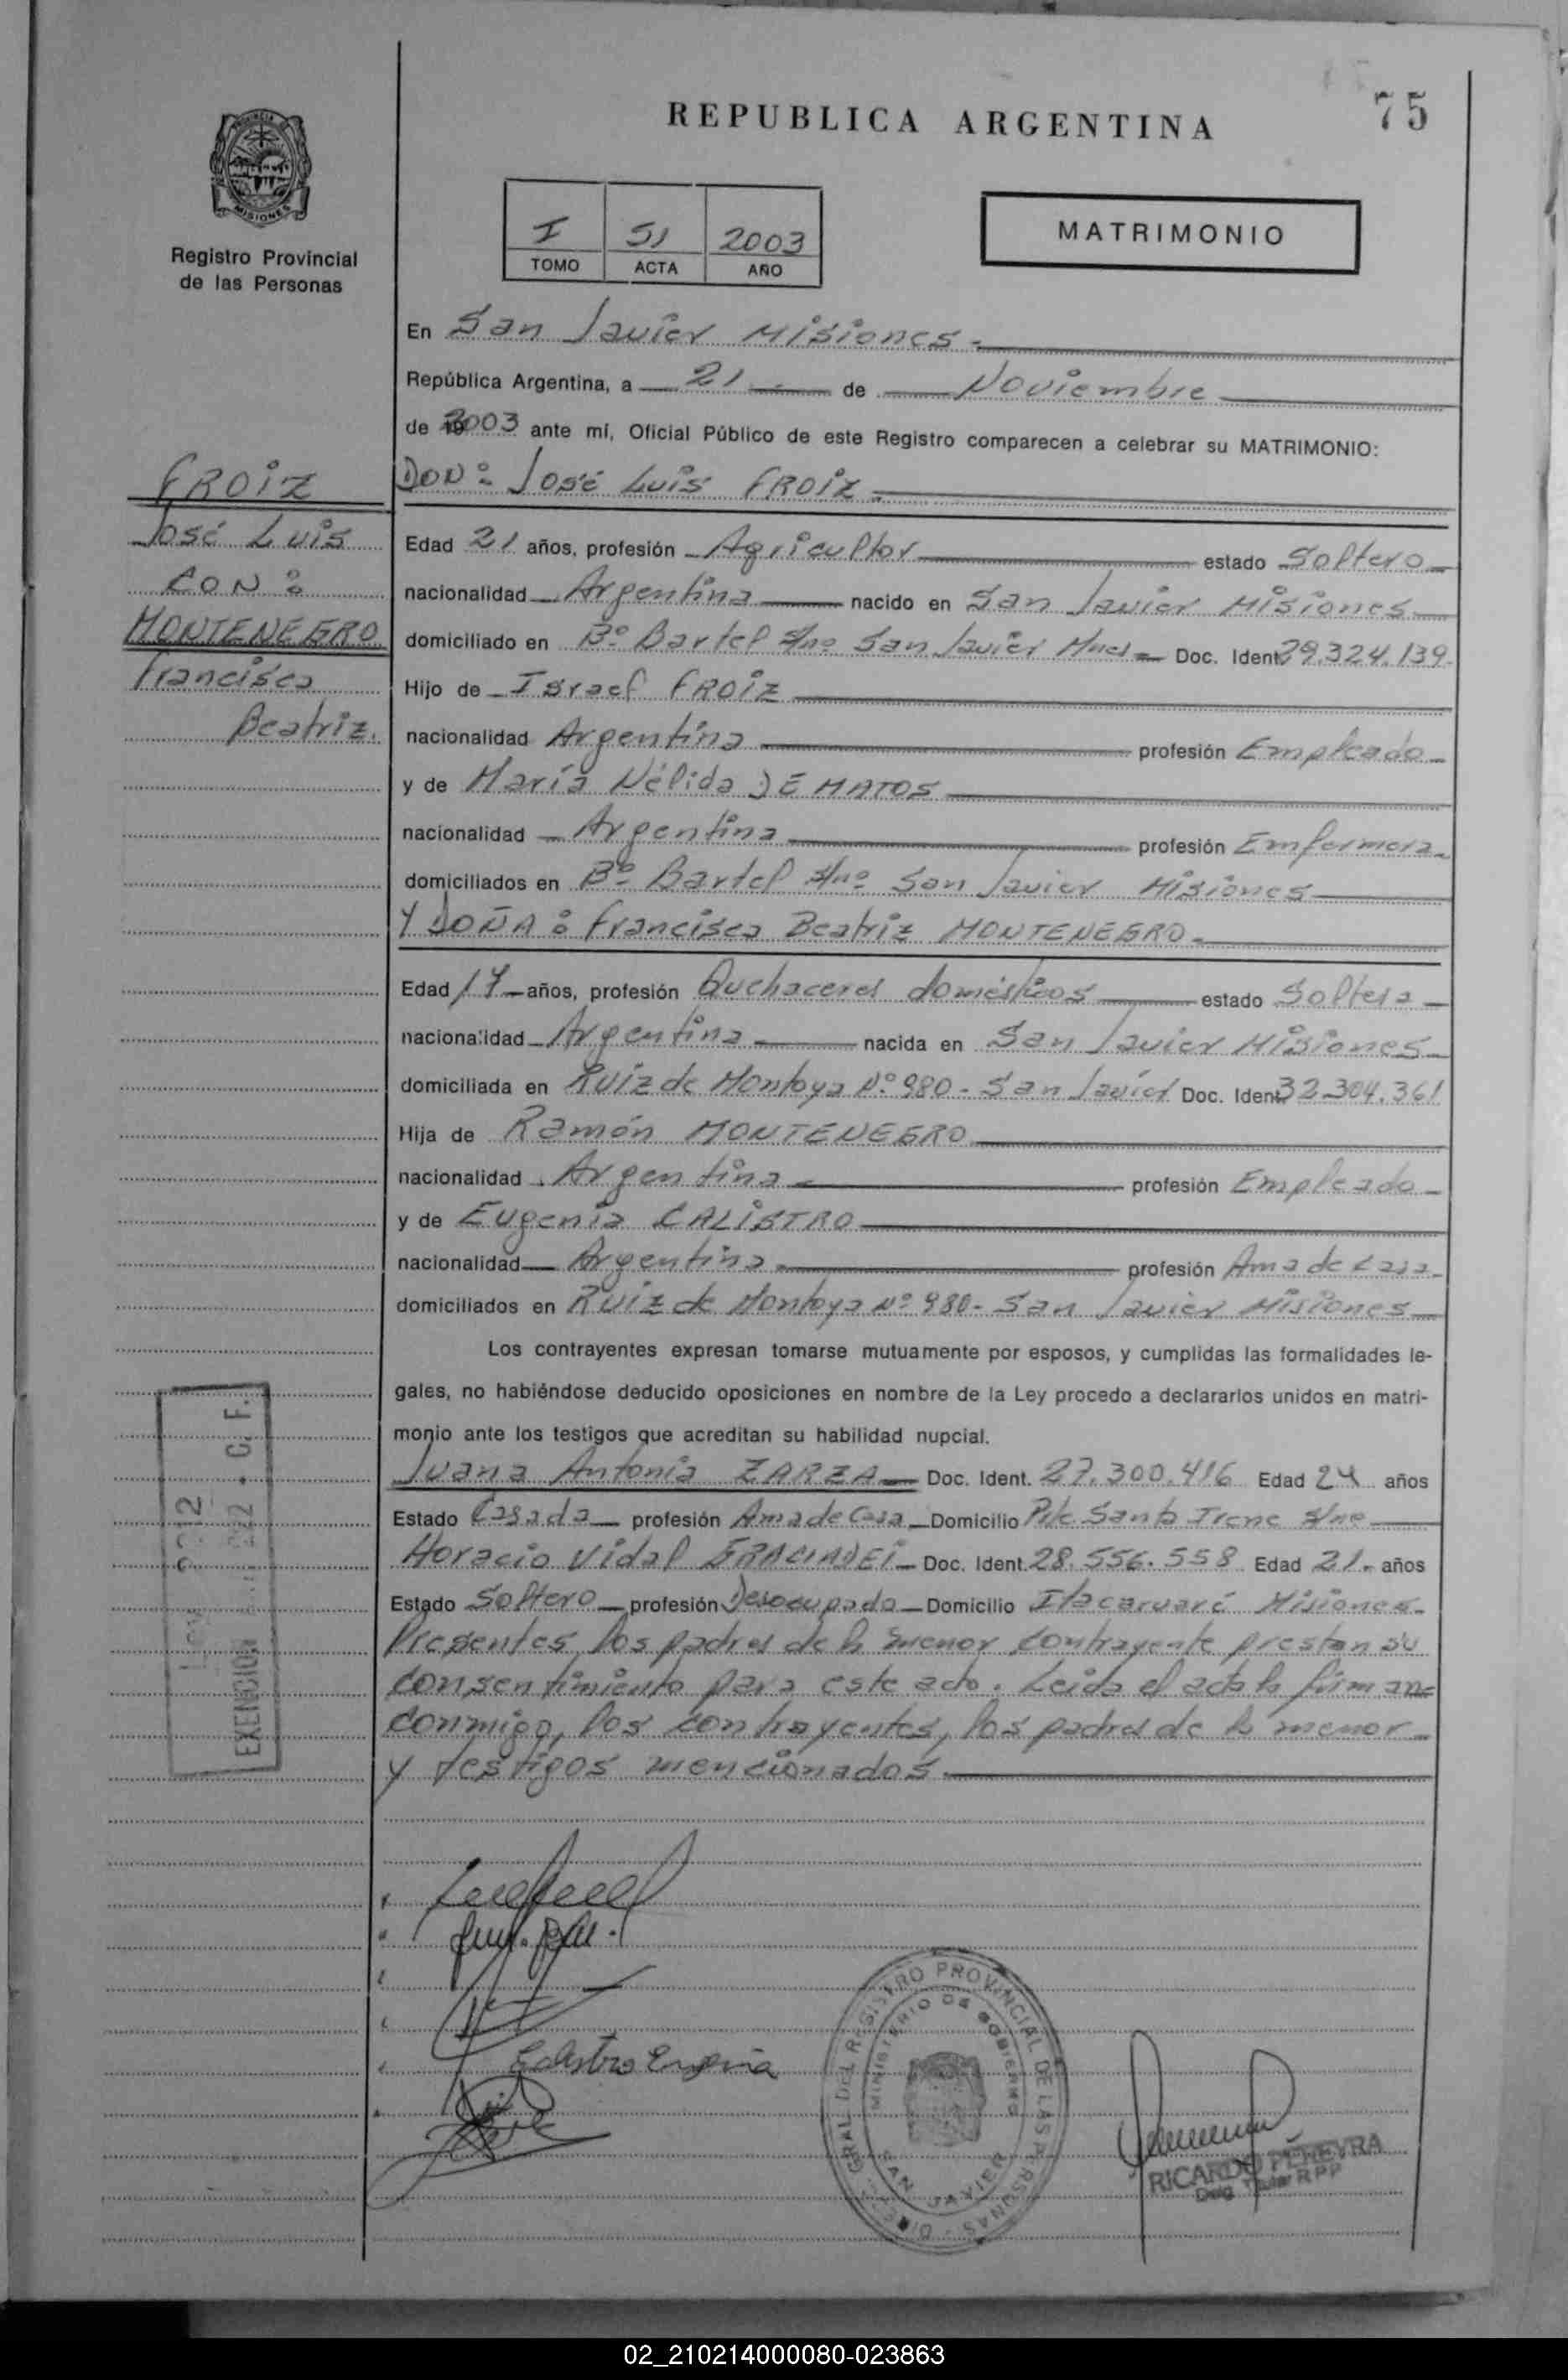 75
REPUBLICA ARGENTINA
MISIONES
Registro Provincial
de las Personas
I 51 2003
TOMO ACTA AÑO
MATRIMONIO
En San Javier Misiones.
República Argentina, a 21 de Noviembre
de 2003 ante mí, Oficial Público de este Registro comparecen a celebrar su MATRIMONIO:
FROIZ
José Luis
CON:
MONTENEGRO
Francisca
Beatriz.
DON: José Luis FROIZ
Edad 21 años, profesión Agricultor estado Soltero
nacionalidad Argentina nacido en San Javier Misiones
domiciliado en Bº Bartel s/nº San Javier Mnes Doc. Ident 29.324.139.
Hijo de Israel FROIZ
nacionalidad Argentina profesión Empleado
y de María Nélida DE MATOS
nacionalidad Argentina profesión Emfermera
domiciliados en Bº Bartel s/nº San Javier Misiones
Y DOÑA: Francisca Beatriz MONTENEGRO.
Edad 17 años, profesión Quehaceres domésticos estado Soltera
nacionalidad Argentina nacida en San Javier Misiones
domiciliada en Ruiz de Montoya Nº 980 - San Javier Doc. Ident 32.304.361
Hija de Ramón MONTENEGRO
nacionalidad Argentina profesión Empleado
y de Eugenia CALISTRO
nacionalidad Argentina profesión Ama de Casa
domiciliados en Ruiz de Montoya Nº 980 - San Javier Misiones
Los contrayentes expresan tomarse mutuamente por esposos, y cumplidas las formalidades le-
gales, no habiéndose deducido oposiciones en nombre de la Ley procedo a declararlos unidos en matri-
monio ante los testigos que acreditan su habilidad nupcial.
Juana Antonia ZARZA Doc. Ident. 27.300.416 Edad 24 años
Estado Casada profesión Ama de Casa Domicilio Pje Santa Irene s/nº
Horacio Vidal GRACIADEI Doc. Ident. 28.556.558 Edad 21 años
Estado Soltero profesión Desocupado Domicilio Itacaruaré Misiones.
Presentes los padres de la menor contrayente prestan su
consentimiento para este acto. Leida el acta la firman
conmigo, los contrayentes, los padres de la menor
y testigos mencionados.
EXENCION
Calistro Eugenia
REGISTRO PROVINCIAL DE LAS PERSONAS
MINISTERIO DE GOBIERNO
SAN JAVIER
RICARDO PEREYRA
Deleg. Titular R P P
02_210214000080-023863